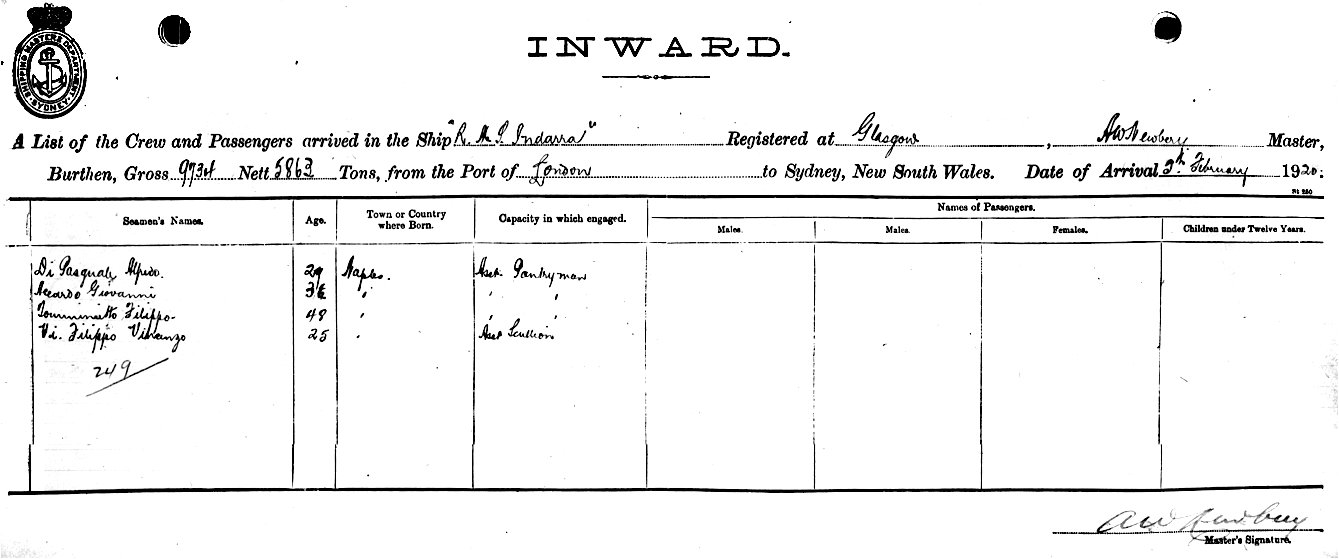 SHIPPING MASTERS DEPARTMENT
SYDNEY
INWARD.
A List of the Crew and Passengers arrived in the Ship "R. M. S. Indarra" Registered at Glasgow, AW Newbery Master,
Burthen, Gross 9734 Nett 5863 Tons, from the Port of London to Sydney, New South Wales. Date of Arrival February 1920.
Seamen's Names. Age. Town or Country where Born. Capacity in which engaged. Names of Passengers.
Males. Males. Females. Children under Twelve Years.
Di Pasquale Alfredo. 29 Naples. Asst. Pantryman
Accardo Giovanni " " "
Filippo 48 " " "
Filippo Vincenzo 25 " Asst Scullion
249
AW Newbery
Master's Signature.